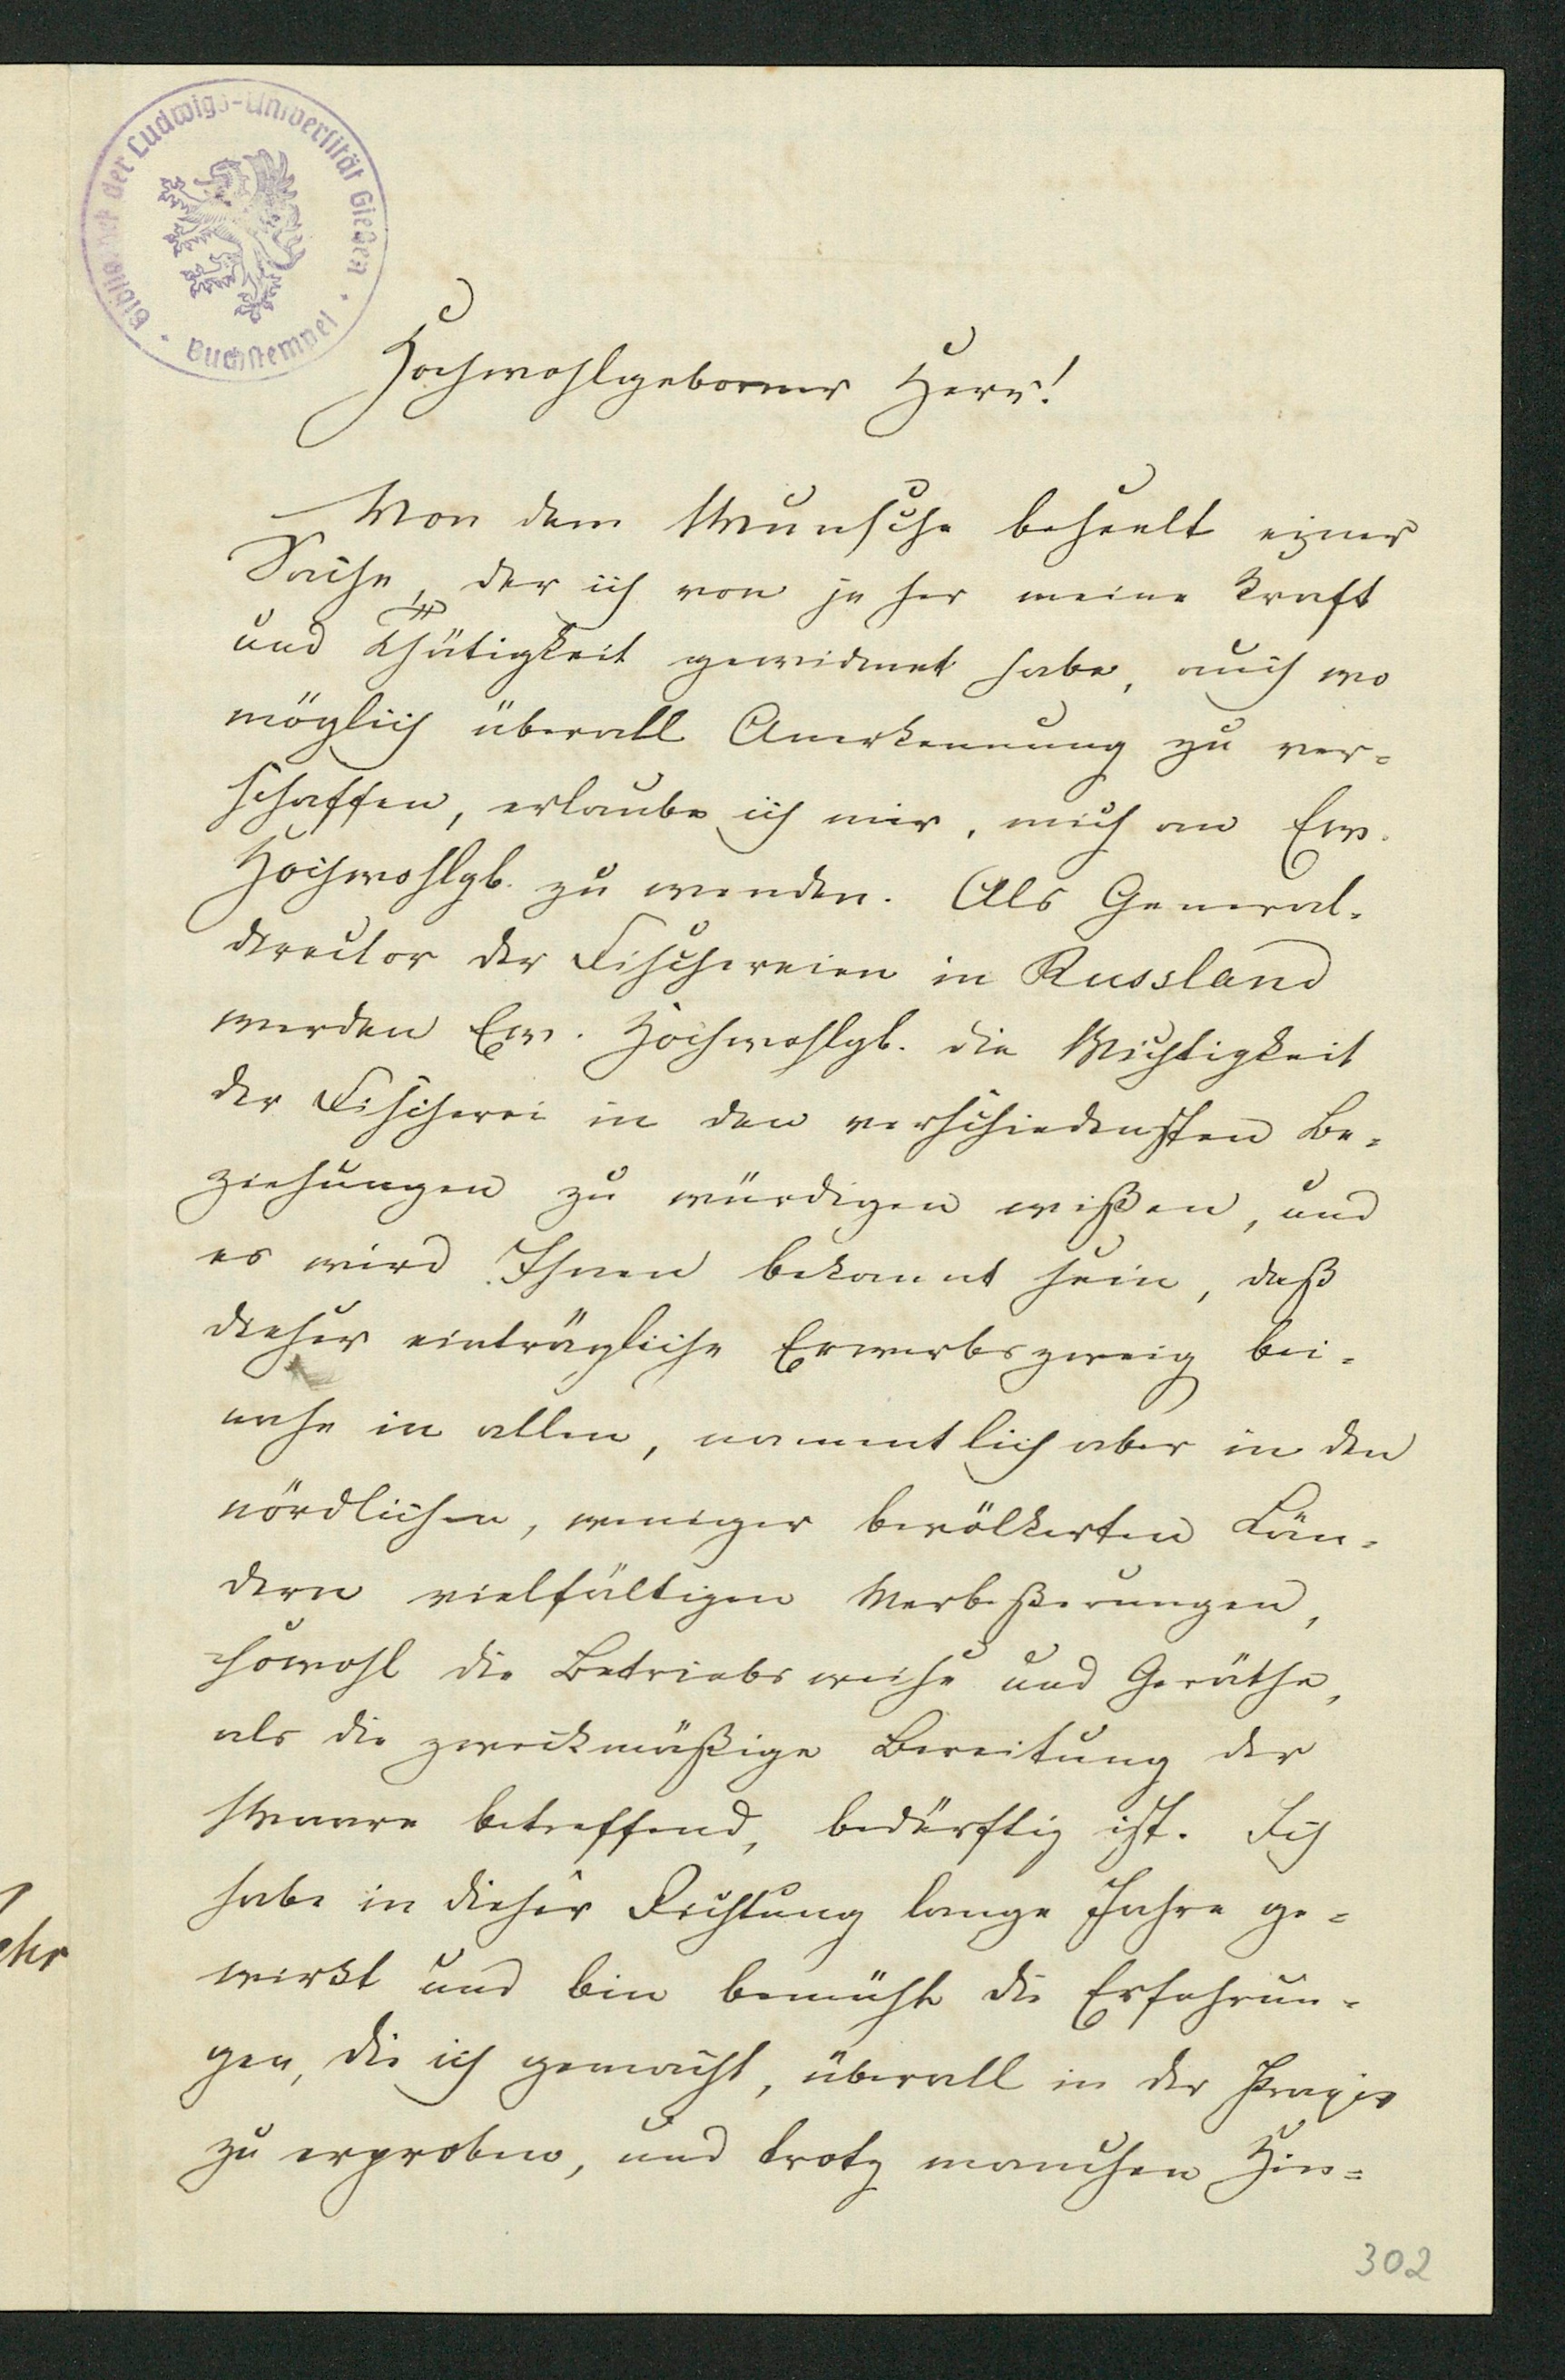 Bibliothek der Ludwigs-Universität Gießen
Buchstempel
Hochwohlgeborner Herr!
Von dem Wunsche beseelt einer
Sache, der ich von je her meine Kraft
und Thätigkeit gewidmet habe, auch wo
möglich überall Anerkennung zu ver-
schaffen, erlaube ich mir, mich an Ew.
Hochwohlgb. zu wenden. Als General-
director der Fischereien in Russland
werden Ew. Hochwohlgb. die Wichtigkeit
der Fischerei in den verschiedensten Be-
ziehungen zu würdigen wißen, und
es wird Ihnen bekannt sein, daß
dieser einträgliche Erwerbszweig bei-
nahe in allen, namentlich aber in den
nördlichen, weniger bevölkerten Län-
dern vielfältigen Verbeßerungen,
sowohl die Betriebsweise und Geräthe,
als die zweckmäßige Bereitung der
Waare betreffend, bedürftig ist. Ich
habe in dieser Richtung lange Jahre ge-
wirkt und bin bemüht die Erfahrun-
gen, die ich gemacht, überall in der Praxis
zu erproben, und trotz manchen Hin-
302